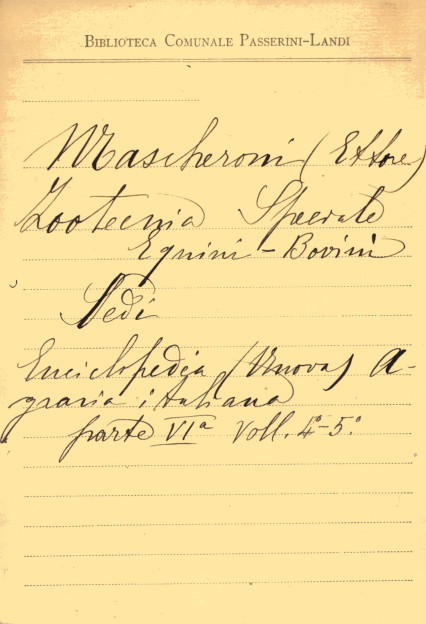 BIBLIOTECA COMUNALE PASSERINI-LANDI
Mascheroni (Ettore)
Zootecnia Speciale
Equini - Bovini
Vedi
Enciclopedia (Nuova) A-
graria italiana
parte VIa Voll. 4°-5°